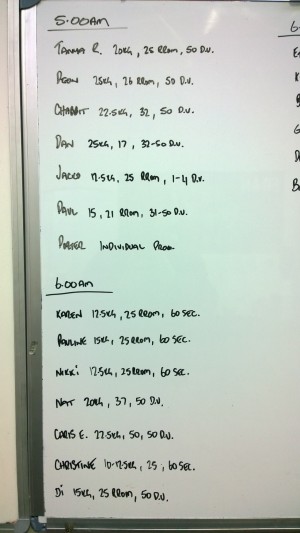 5.00am
TANIA R. 20KG, 25 RROM, 50 D.U.
25KG, 26 RROM, 50 D.U.
CHABBIT 22.5KG, 32, 50 D.U.
DAN 25KG, 17, 32-50 D.U.
25 RROM, 1-4 D.U.
PAUL 15, 21 RROM, 31-50 D.U.
PORTER INDIVIDUAL PROG
6.00AM
KAREN 12.5KG, 25 RROM, 60 SEC.
PAULINE 15KG, 25 RROM, 60 SEC.
NIKKI 12.5KG, 25 RROM, 60 SEC.
NAT 20KG, 37, 50 D.U.
CARIS E. 22.5KG, 50, 50 D.U.
CHRISTINE 10-12.5KG, 25, 60 SEC.
Di 15KG, 25 RROM, 50 D.U.
6.